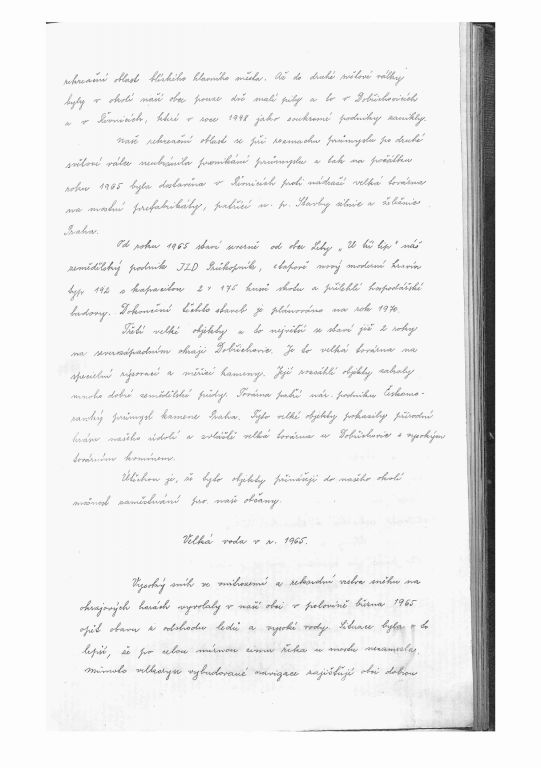 rekreační oblast blízkého hlavního města. Až do druhé světové války
byly v okolí naší obce pouze dvě malé pily a to v Dobřichovicích
a v Řevnicích, které v roce 1948 jako soukromé podniky zanikly.
Naše rekreační oblast se při rozmachu průmyslu po druhé
světové válce neubránila pronikání průmyslu a tak na počátku
roku 1965 byla dostavěna v Řevnicích proti nádraží velká továrna
na mostní prefabrikáty, patřící n. p. Stavby silnic a železnic
Praha.
Od roku 1965 staví severně od obce Lety „U tří lip" náš
zemědělský podnik JZD Průkopník, etapově nový moderní kravín
typ 192 s kapacitou 2 x 175 kusů skotu a přilehlé hospodářské
budovy. Dokončení těchto staveb je plánováno na rok 1970.
Třetí velké objekty a to největší se staví již 2 roky
na severozápadním okraji Dobřichovic. Je to velká továrna na
specielní rýsovací a měřící kameny. Její rozsáhlé objekty zabraly
mnoho dobré zemědělské půdy. Továrna patří nár. podniku Českomo-
ravský průmysl kamene Praha. Tyto velké objekty pokazily přírodní
krásu našeho údolí a zvláště velká továrna u Dobřichovic s vysokým
továrním komínem.
Útěchou je, že tyto objekty přinášejí do našeho okolí
možnost zaměstnání pro naše občany.
Velká voda v r. 1965.
Vysoký sníh ve vnitrozemí a rekordní vrstva sněhu na
okrajových horách vyvolaly v naší obci v polovině března 1965
opět obavu z odchodu ledů a vysoké vody. Situace byla o to
lepší, že po celou mírnou zimu řeka u mostu nezamrzla.
Mimoto velkoryse vybudované navigace zajišťují obci dobrou